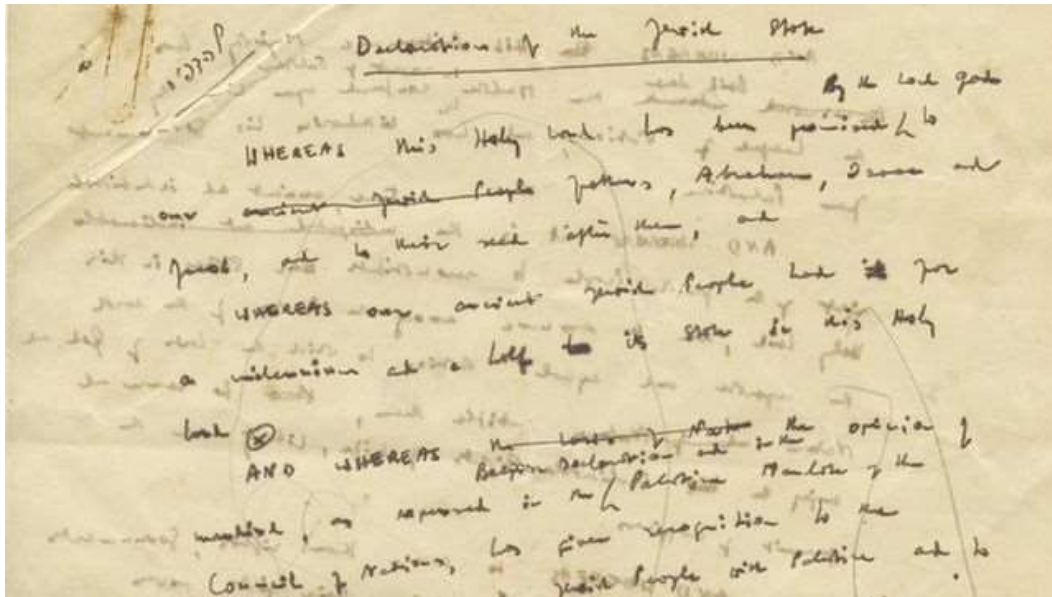 Declaration of the Jewish State
By the Lord God
WHEREAS this Holy Land has been promised to
our ancient Jewish People fathers, Abraham, Isaac and
Jacob, and to their seed after them, and
WHEREAS our ancient Jewish People had for
a millennium and a half its State in this Holy
Land
AND WHEREAS the the opinion of
Balfour Declaration and in the
mankind, as expressed in the Palestine Mandate of the
Council of Nations, has given recognition to the
Jewish People with Palestine and to